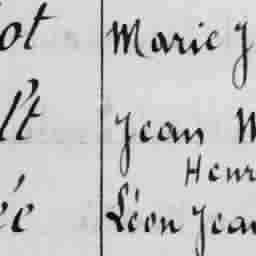 ot Marie J
lt Jean M
Henr
ée Léon Jean